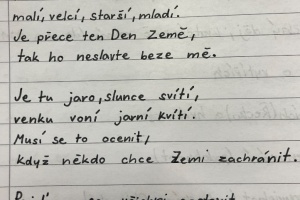 malí, velcí, starší, mladí.
Je přece ten Den Země,
tak ho neslavte beze mě.
Je tu jaro, slunce svítí,
venku voní jarní kvítí.
Musí se to ocenit,
když někdo chce Zemi zachránit.